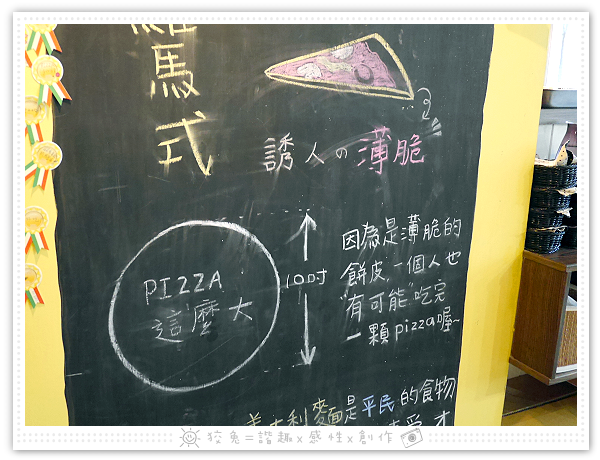 羅馬式
誘人の薄脆
PIZZA
這麼大
10吋
因為是薄脆的
餅皮，一個人也
"有可能"吃完
一顆pizza喔~
義大利麵是平民的食物
狡兔=諧趣x感性x創作